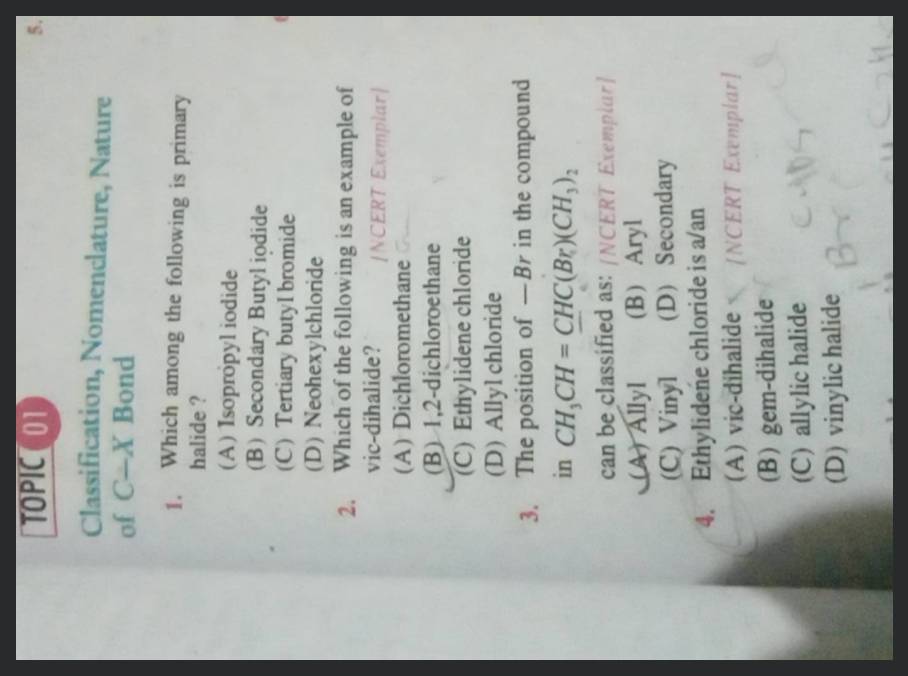 TOPIC 01
5.
Classification, Nomenclature, Nature
of C–X Bond
1. Which among the following is primary
halide ?
(A) Isopropyl iodide
(B) Secondary Butyl iodide
(C) Tertiary butyl bromide
(D) Neohexylchloride
2. Which of the following is an example of
vic-dihalide? [NCERT Exemplar]
(A) Dichloromethane
(B) 1,2-dichloroethane
(C) Ethylidene chloride
(D) Allyl chloride
3. The position of —Br in the compound
in CH₃CH = CHC(Br)(CH₃)₂
can be classified as: [NCERT Exemplar]
(A) Allyl (B) Aryl
(C) Vinyl (D) Secondary
4. Ethylidene chloride is a/an
(A) vic-dihalide [NCERT Exemplar]
(B) gem-dihalide
(C) allylic halide
(D) vinylic halide
Br